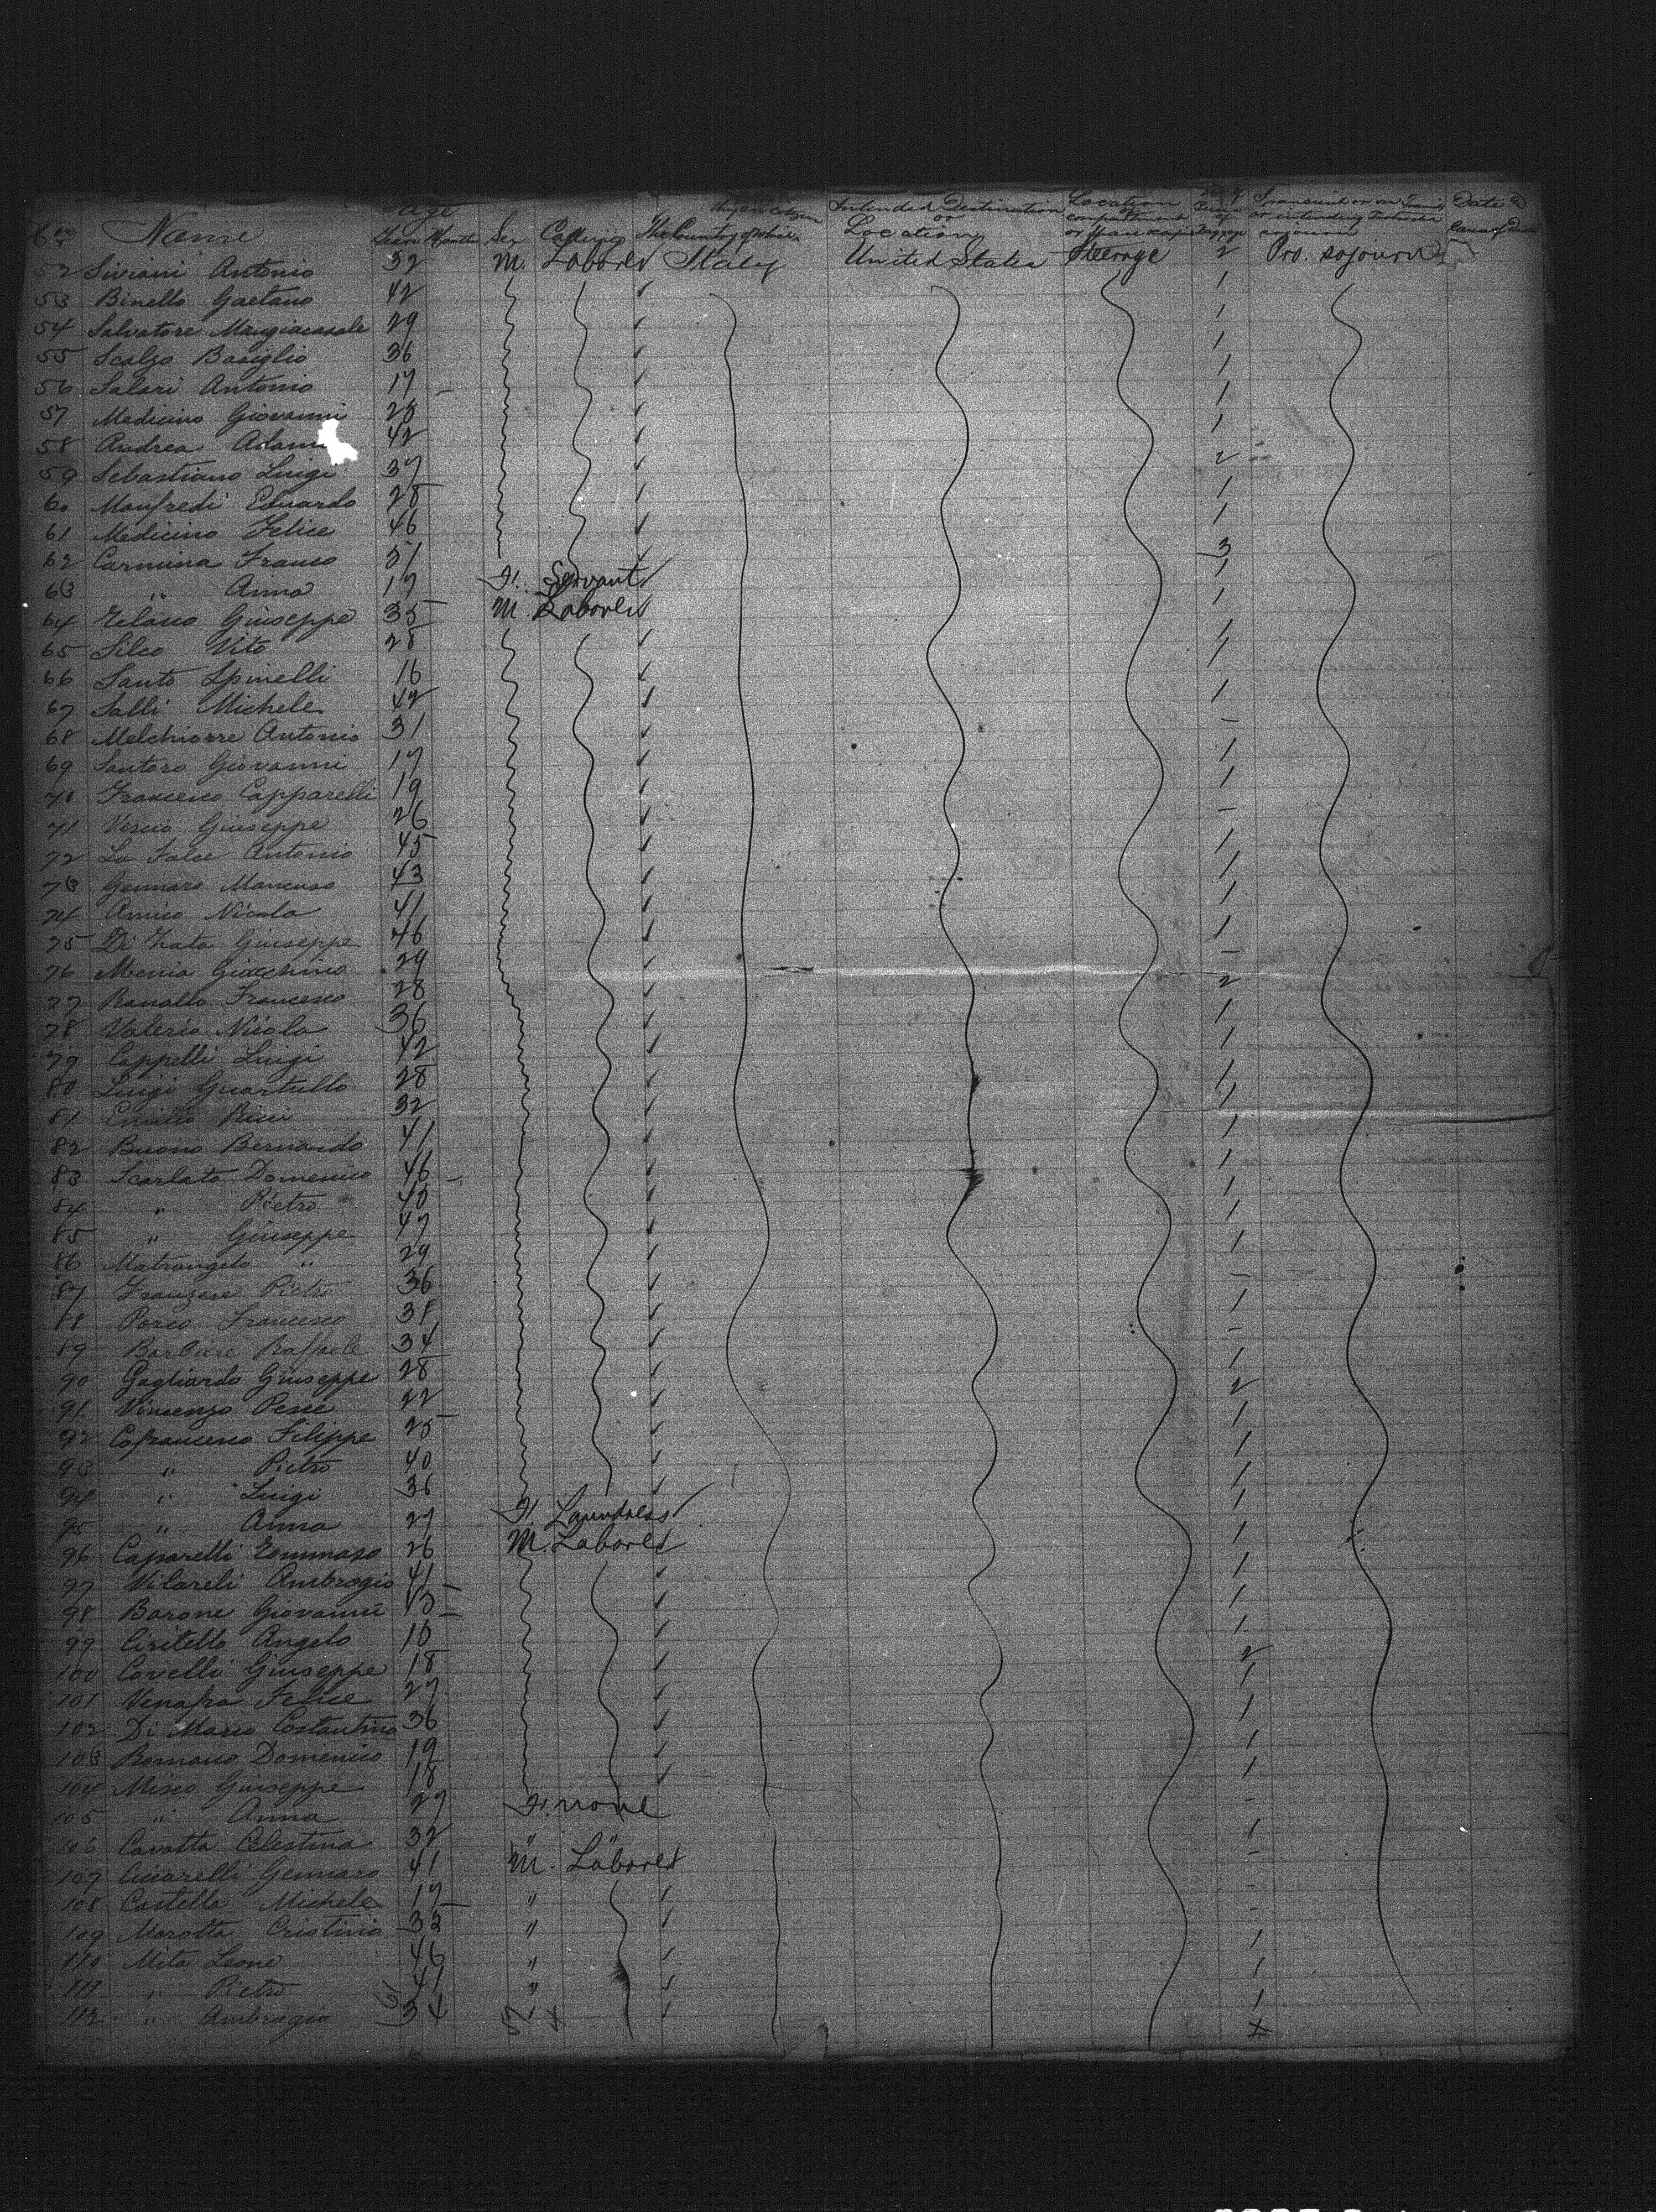 Nos Name Age Years Months Sex Calling The Country of which they are citizens Intended Destination or Location Location of compartment or steerage No. of Pieces of Baggage Transient or in Transit or intending Protracted sojourn Date & Cause of Death
52 Siviani Antonio 32 M. Laborer Italy United States Steerage 2 Pro. sojourn
53 Binello Gaetano 42 1
54 Salvatore Mangiacasale 29 1
55 Scalzo Basiglio 36 1
56 Salari Antonio 17 1
57 Medicino Giovanni 28 1
58 Andrea Adam 42
59 Sebastiano Luigi 37 2
60 Manfredi Eduardo 28 1
61 Medicino Felice 46 1
62 Carmina Franco 37 3
63 " Anna 17 F. Servant 1
64 Giuseppe 35 M. Laborer 1
65 Silco Vito 28 1
66 Santo Spinelli 16 1
67 Salli Michele 42 1
68 Melchiorre Antonio 31 –
69 Santoro Giovanni 17 1
71 Francesco Capparelli 19 1
71 Vescio Giuseppe 26 –
72 La Falce Antonio 45 1
73 Gennaro Mancuso 43 1
74 Amico Nicola 41 1
75 Di Zata Giuseppe 46 1
76 Menia Giacchino 29 –
77 Ranallo Francesco 28 2
78 Valerio Nicola 36 1
79 Cappelli Luigi 42 1
80 Luigi Quartullo 28 1
81 Emilio Ricci 32 1
82 Buono Bernardo 41 1
83 Scarlato Domenico 46 1
84 " Pietro 45 1
85 " Giuseppe 47 1
86 Matrangelo " 29 –
87 Franzese Pietro 36 1
88 Porco Francesco 38 –
89 Barbiere Raffaele 34 1
90 Gagliardo Giuseppe 28 2
91 Vincenzo Pesce 22 1
92 Cofrancesco Filippe 25 1
93 " Pietro 40 1
94 " Luigi 36 1
95 " Anna 27 F. Laundress
96 Caparelli Tommaso 26 M. Laborer 1
97 Vilareli Ambrogio 41 1
98 Barone Giovanni 45 1
99 Ciritello Angelo 15 1
100 Covelli Giuseppe 18 2
101 Venafra Felice 27 1
102 Di Marco Costantino 36 1
103 Romano Domenico 19 1
104 Misco Giuseppe 18 1
105 " Anna 27 F. none –
106 Cavotta Celestina 32 " " 1
107 Ciccarelli Gennaro 41 M. Laborer –
108 Castella Michele 17 " –
109 Marotta Cristinio 33 " –
110 Mita Leone 46 " 1
111 " Pietro 41 " 1
112 " Ambrogio 34 1